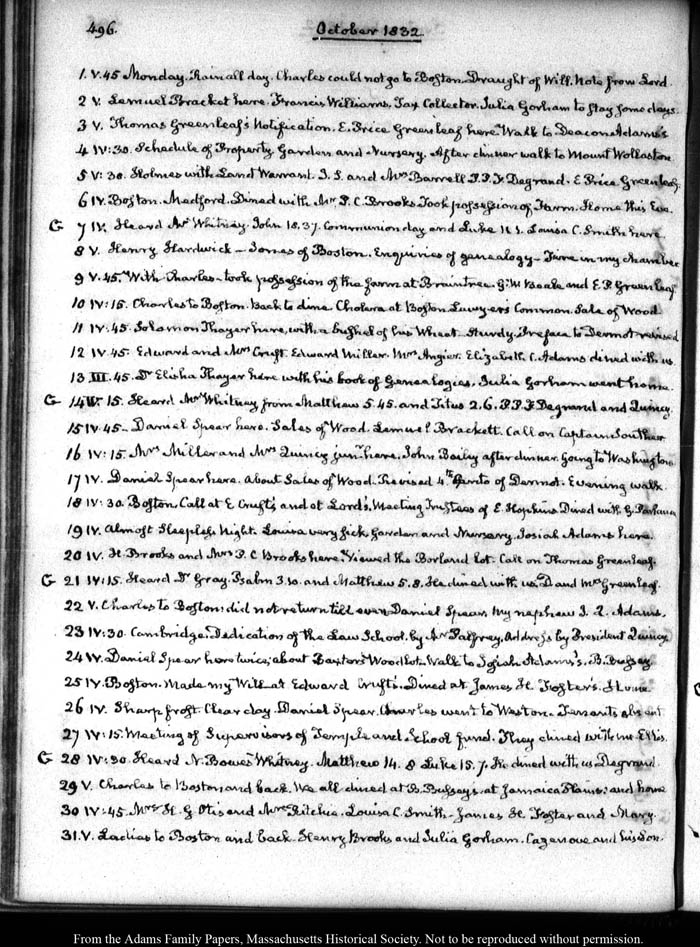 496. October 1832
1. V.45 Monday. Rain all day. Charles could not go to Boston. Draught of Will. Note from Lord.
2 V. Lemuel Bracket here. Francis Williams, Tax Collector. Julia Gorham to stay some days.
3 V. Thomas Greenleaf's Notification. E. Price Greenleaf here. Walk to Deacon Adams's
4 IV:30. Schedule of Property. Garden and Nursery. After dinner walk to Mount Wollaston
5 V:30. Holmes with Land Warrant. I. S. and Mrs Barrell P. P. F. Degrand. E Price Greenleaf
6 IV. Boston. Medford. Dined with Mr P. C. Brooks. Took possession of Farm. Home this Eve.
G 7 IV. Heard Mr Whitney. John 18.37. Communion day and Luke Louisa C. Smith here
8 V. Henry Hardwick – Jones of Boston. Enquiries of genealogy – in my chamber
9 V.45. With Charles took possession of the farm at Braintree. G. W Beale and E. P. Greenleaf
10 IV:15. Charles to Boston. Back to dine. Cholera at Boston Lawyers Common. Sale of Wood
11 IV.45. Solomon Thayer here, with a bushel of his Wheat. Sturdy. Preface to Dermot revised
12 IV.45. Edward and Mrs Cruft. Edward Miller. Mrs Angier. Elizabeth C. Adams dined with us
13 III.45. Dr Elisha Thayer here with his book of Genealogies. Julia Gorham went home.
G 14 IV. 15. Heard Mr Whitney from Matthew 5.45. and Titus 2.6. P. P. F Degrand and Quincy.
15 IV.45– Daniel Spear here. Sales of Wood. Lemuel Brackett. Call on Captain Souther
16 IV:15. Mrs Miller and Mrs Quincy junr here. John Baily after dinner. Going to Washington
17 IV. Daniel Spear here. About Sales of Wood. Revised 4th Canto of Dermot. Evening walk.
18 IV:30. Boston. Call at E Cruft's and at Lord's. Meeting Trustees of E. Hopkins Dined with G. Parkman
19 IV. Almost sleepless Night. Louisa very sick. Garden and Nursery. Josiah Adams here.
20 IV. H. Brooks and Mrs P. C Brooks here. Viewed the Borland lot. Call on Thomas Greenleaf.
G 21 IV:15. Heard Dr Gray. Psalm 3.10. and Matthew 5.8. He dined with us. D and Mrs Greenleaf.
22 V. Charles to Boston: did not return till even. Daniel Spear. My nephew J. Q. Adams.
23 IV:30. Cambridge. Dedication of the Law School. by Mr Palfrey. Address by President Quincy
24 IV. Daniel Spear here twice, about Baxter's Woodlot. Walk to Josiah Adams's. B. Bussey
25 IV. Boston. Made my Will at Edward Cruft's. Dined at James H. Foster's. Home
26 IV. Sharp frost. Clear day. Daniel Spear. Charles went to Weston. Tenants absent
27 IV:15. Meeting of Supervisors of Temple and School fund. They dined with me. Ellis.
G 28 IV:30. Heard N. Bowes Whitney. Matthew 14. 8 Luke 15. 7. He dined with us. Degrand
29 V. Charles to Boston and back. We all dined at B. Bussey's at Jamaica Plains; and home
30 IV:45. Mrs H. G Otis and Mrs Ritchie. Louisa C. Smith. James H. Foster and Mary.
31. V. Ladies to Boston and back. Henry Brooks and Julia Gorham. Cazenove and his Son.
From the Adams Family Papers, Massachusetts Historical Society. Not to be reproduced without permission.